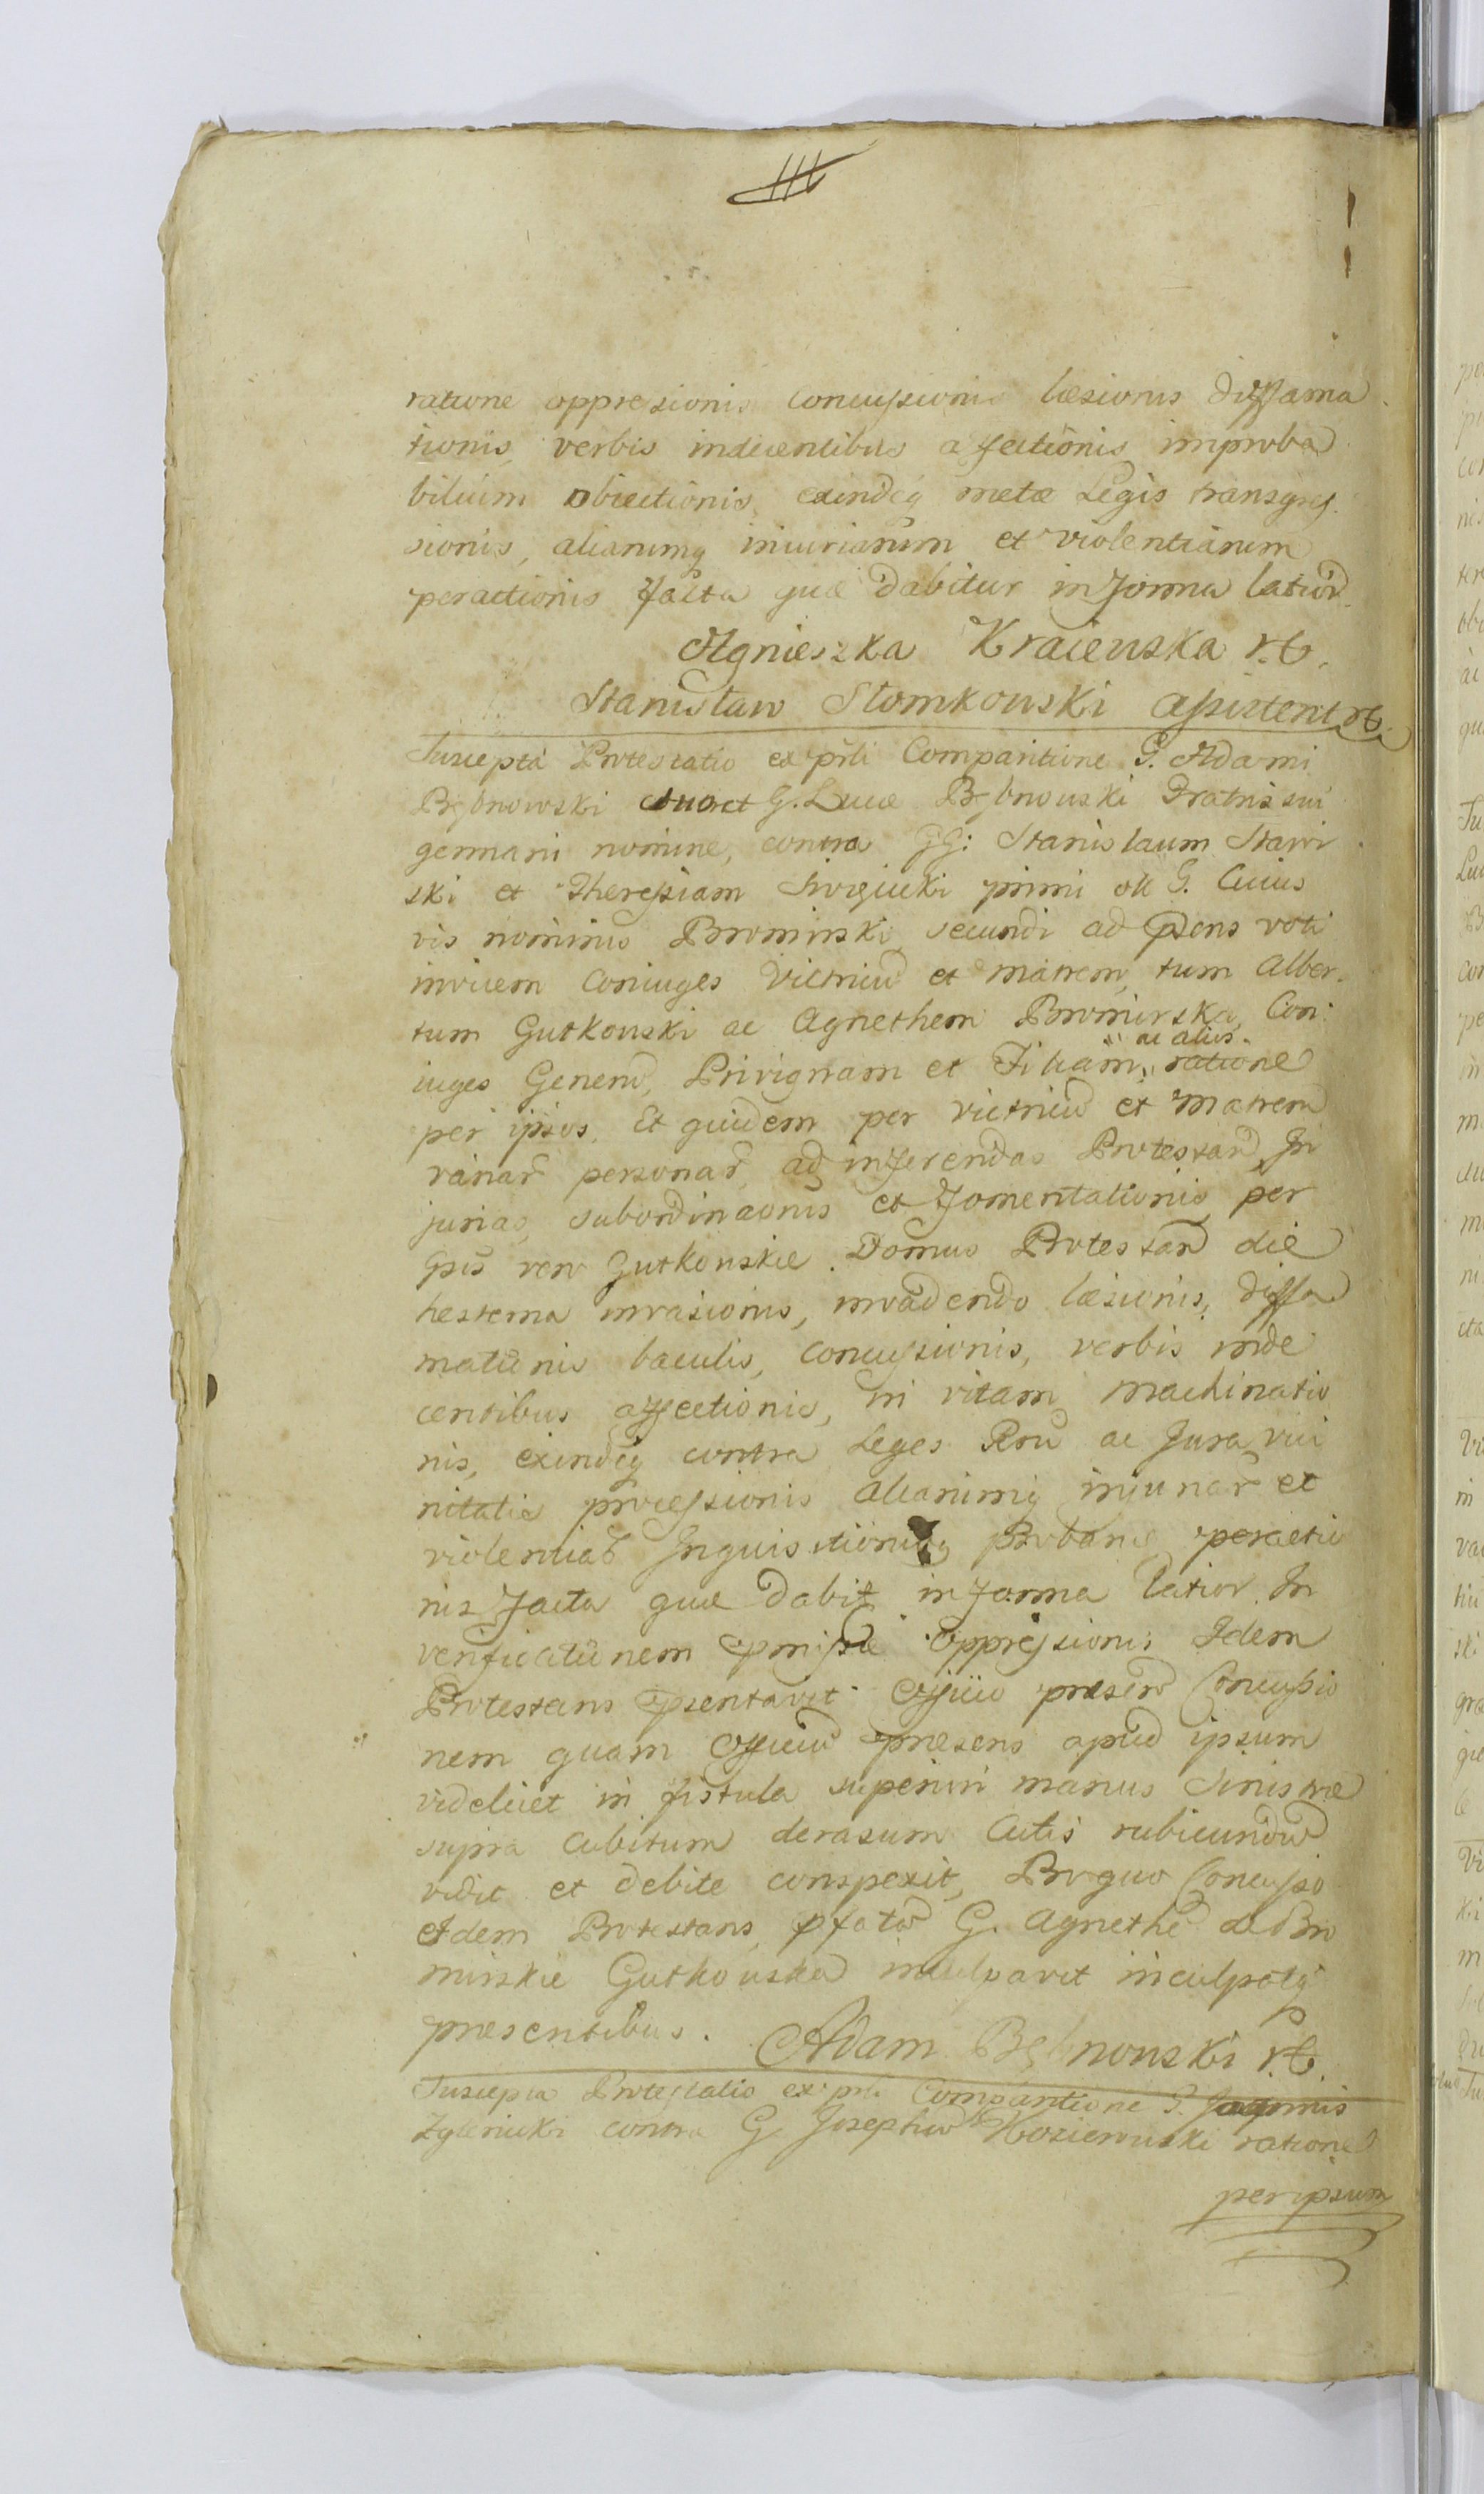 ratione oppresionis concussionis læsionis diffama
tionis, verbis indecentibus affectionis improba
bilium obiectionis, exindeq metæ Legis transgres
sionis, aliarumq iniuriarum et violentiarum
peractionis facta quæ dabitur in forma latior.
Agnieszka Kraiewska
Stanisław Słomkowski assistent
Suscepta Protestatio ex prsli Comparitione G. Adami
Bębnowski suo et G. Lucæ Bębnowski Fratris sui
germani nomine, contra GG: Stanislaum Stawi
ski et Theressiam primi olt G. Cuius
vis nominis Bromirski, secundi ad psens voti
invicem Coniuges Victricū et Matrem, tum Alber
tum Gutkowski ac Agnethem Bromirska, Con
iuges Generū, Privignam et Filiam, ac alios ratione
per ipsos, Et quidem per victricū et Matrem
variar personar, ad inferendas Protestari In
jurias, subordinaonis et fomentationis, per
Gutkowskie Domus Protestan die
hesterna invasionis, invadendo læsionis, diffa
mationis baculis, concussionis, verbis inde
centibus affectionis, in vitam machinatio
nis, exindeq contra Leges Rni ac Jura vici
nitatis processionis aliarumq injuriar et
violentiar peractio
nis facta quæ dabit in forma latior. In
verificationem pmissæ oppressionis Idem
Protestans psentavit Officio præsen Concussio
nem quam Officiū præsens apud ipsum
videlicet in fistula superiori manus Sinistræ
supra Cubitum derasum Cutis rubicundū
vidit et debite conspexit, Pro quo Concussio
Idem Protestans, pfatā G. Agnethē de Bro
mirskie Gutkowska inculpavit inculpatq
præsentibus. Adam Bębnowski
Suscepta Protestatio ex prsli Comparitione G.
contra G. Josephū ratione
per ipsum